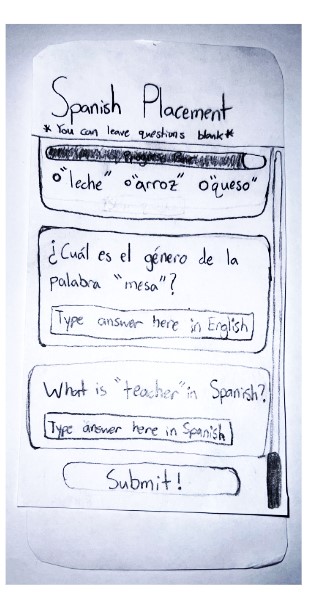 Spanish Placement
* You can leave questions blank*
Progress Bar
o"leche" o"arroz" o"queso"
¿Cuál es el género de la
palabra "mesa"?
Type answer here in English
What is "teacher" in Spanish?
Type answer here in Spanish
Submit!